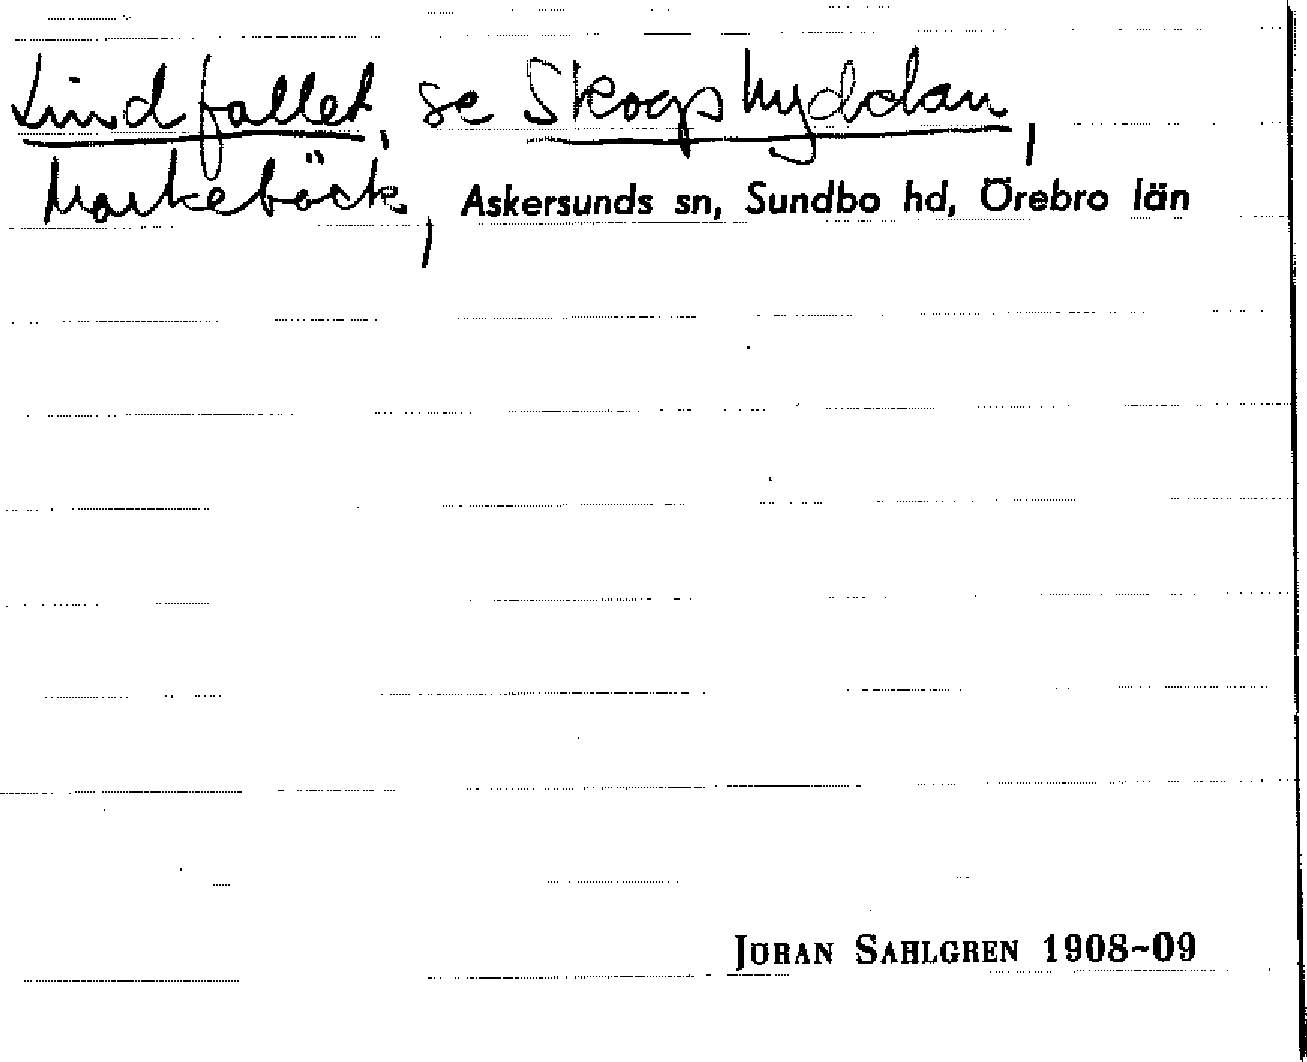 Lindfallet, se Skogshyddan,
Markebäck, Askersunds sn, Sundbo hd, Örebro län
JÖRAN SAHLGREN 1908-09